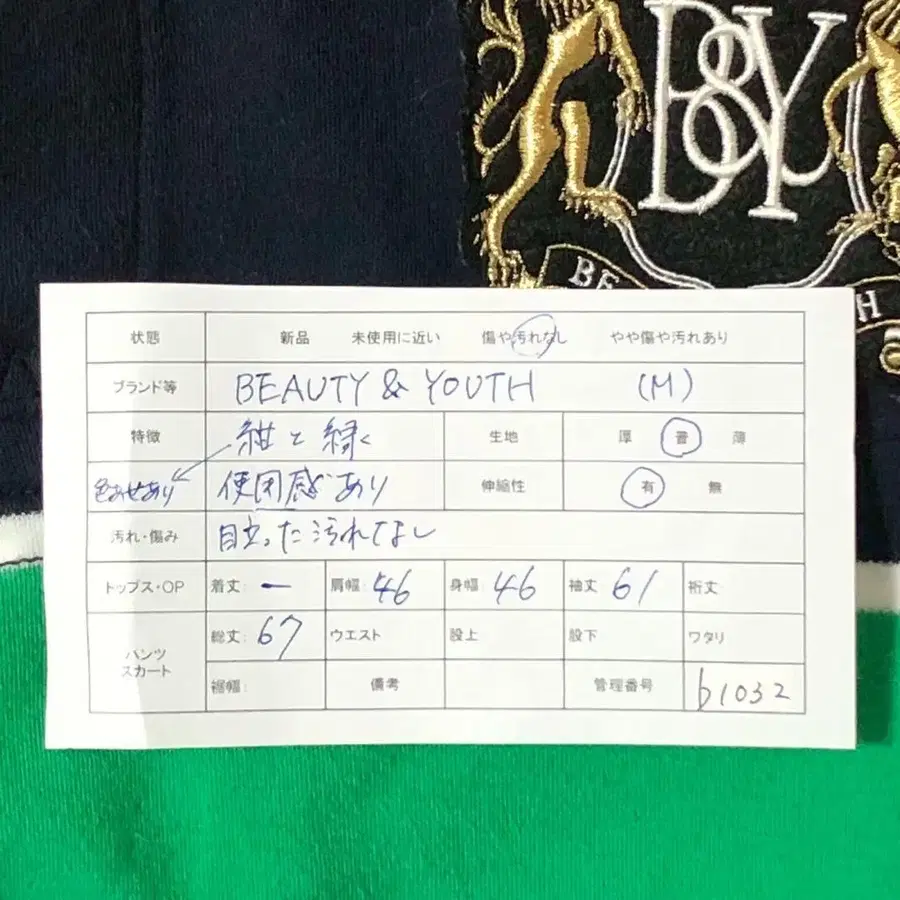 B&Y
BE
H
状態 新品 未使用に近い 傷や汚れなし やや傷や汚れあり
ブランド等 BEAUTY & YOUTH (M)
特徴 紺と緑 生地 厚 普 薄
色あせあり 使用感あり 伸縮性 有 無
汚れ・傷み 目立った汚れなし
トップス・OP 着丈: ー 肩幅: 46 身幅: 46 袖丈 61 裄丈
パンツ スカート 総丈: 67 ウエスト 股上 股下 ワタリ
裾幅: 備考 管理番号 b1032